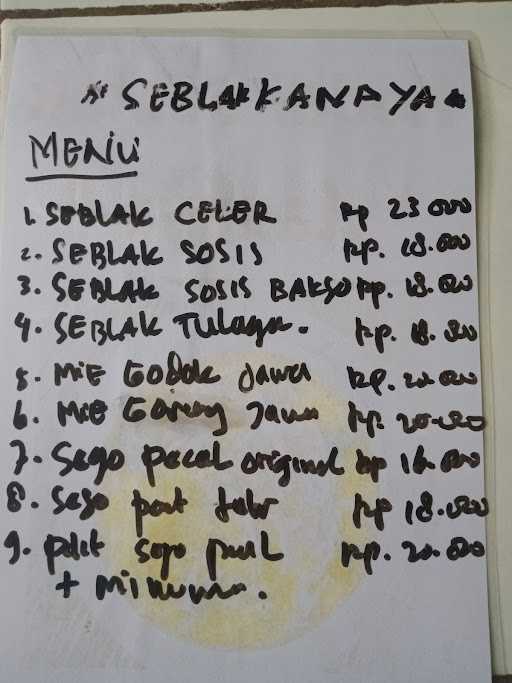 SEBLAK KANAYA
MENU
1. SEBLAK CEKER Rp 23 000
2. SEBLAK SOSIS Rp. 18.000
3. SEBLAK SOSIS BAKSO Rp. 18.000
4. SEBLAK TULAGN. Rp. 18.000
5. MIE GODOK JAWA Rp. 20.000
6. MIE GORENG JAWA Rp. 20.000
7. Sego pecel original Rp 16.000
8. Sego telor Rp 18.000
9. Sego Rp. 20.000
+ MINUMAN.